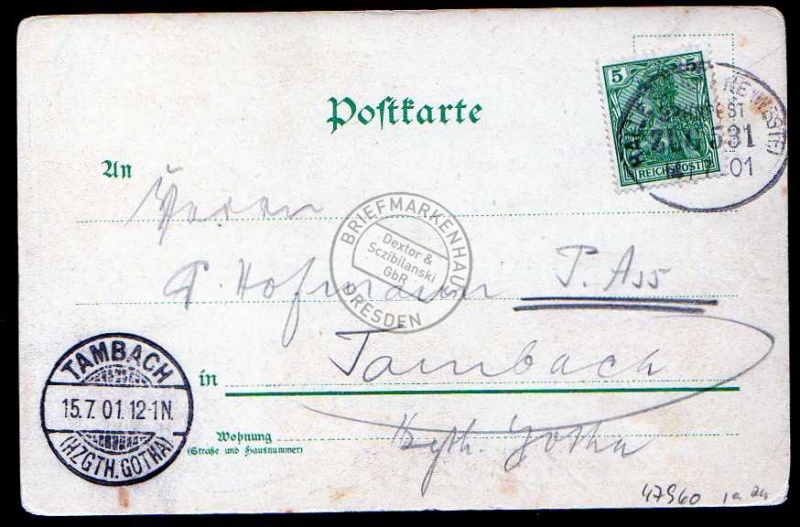 Postkarte
5
REICHSPOST
ZUG 531
01
An
Herrn
BRIEFMARKENHAUS
Dextor &
Sczibilanski
GbR
DRESDEN
P. Hofmann P. Ass
in Tambach
TAMBACH
15.7.01.12-1N.
(HZGTH.GOTHA)
Wohnung
(Straße und Hausnummer)
Hzgth. Gotha
47960